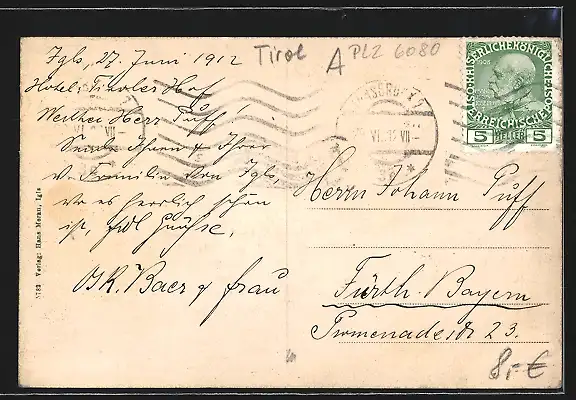 Igls, 27. Juni 1912
Tirol
A PLZ 6080
Hotel: Tiroler Hof
Werther Herr Puff!
Sende Ihnen & Ihrer
w. Familie von Igls,
wo es herrlich schön
ist, frdl Grüsse.
OSK. Baer & Frau
5 HELLER 5
Herrn Johann Puff
Fürth. Bayern
Promenadestr 23.
5782 Verlag: Hans Moran, Igls
8,- €